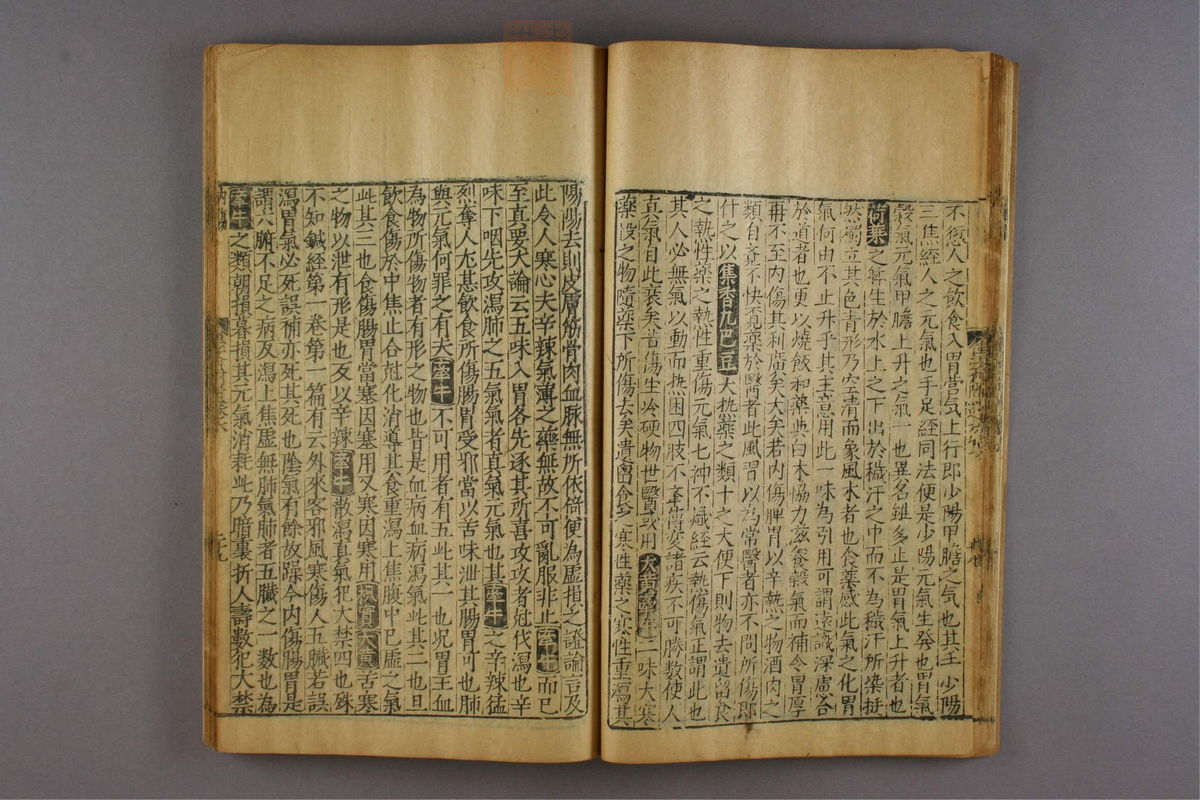 不息人之飲食入胃營气上行即少陽甲膽之气也其主少陽
三焦經人之元氣也手足經同法便是少陽元氣生發也胃氣
穀氣元氣甲膽上升之气一也異名雖多止是胃氣上升者也
荷葉之躰生於水上之下出於穢汙之中而不為穢汙所染挺
然獨立其色青形乃空清而象風木者也食藥感此气之化胃
氣何由不止升乎其主意用此一味為引用可謂遠識深慮合
於道者也更以燒飯和藥與白木協力滋養穀氣而補令胃厚
再不至内傷其利廣矣大矣若内傷脾胃以辛熱之物酒肉之
類自覺不快覔藥於醫者此風習以為常醫者亦不問所傷即
付之以集香丸巴豆大热藥之類十之大便下則物去遺留食
之熱性藥之熱性重傷元氣七神不熾經云熱傷气正謂此也
其人必無氣以動而热困四肢不舉傳變諸疾不可勝数使人
真氣自此衰矣若傷生冷硬物世醫或用大黄牽牛二味大寒
藥投之物隨藥下所傷去矣遺畱食之寒性藥之寒性重瀉其
陽陽去則皮膚筋骨肉血脉無所依倚便為虛損之證論言及
此令人寒心夫辛辣氣薄之藥無故不可亂服非止牽牛而巳
至真要大論云五味入胃各先逐其所喜攻攻者尅伐瀉也辛
味下咽先攻瀉肺之五氣氣者真氣元氣也其牽牛之辛辣猛
烈奪人尤甚飲食所傷腸胃受邪當以苦味泄其腸胃可也肺
與元氣何罪之有夫牽牛不可用者有五此其一也况胃主血
為物所傷物者有形之物也皆是血病血病瀉氣此其二也且
飲食傷於中焦止合尅化消導其食重瀉上焦腹中巳虛之氣
此其三也食傷腸胃當塞因塞用又寒因寒用枳實大黄苦寒
之物以泄有形是也反以辛辣牽牛散瀉真氣犯大禁四也殊
不知鍼經第一卷第一篇有云外來客邪風寒傷人五臟若誤
瀉胃氣必死誤補亦死其死也陰氣有餘故躁今内傷腸胃是
謂六腑不足之病反瀉上焦虛無肺氣肺者五臟之一数也為
牽牛之類朝損暮損其元氣消耗此乃暗裏折人壽數犯大禁